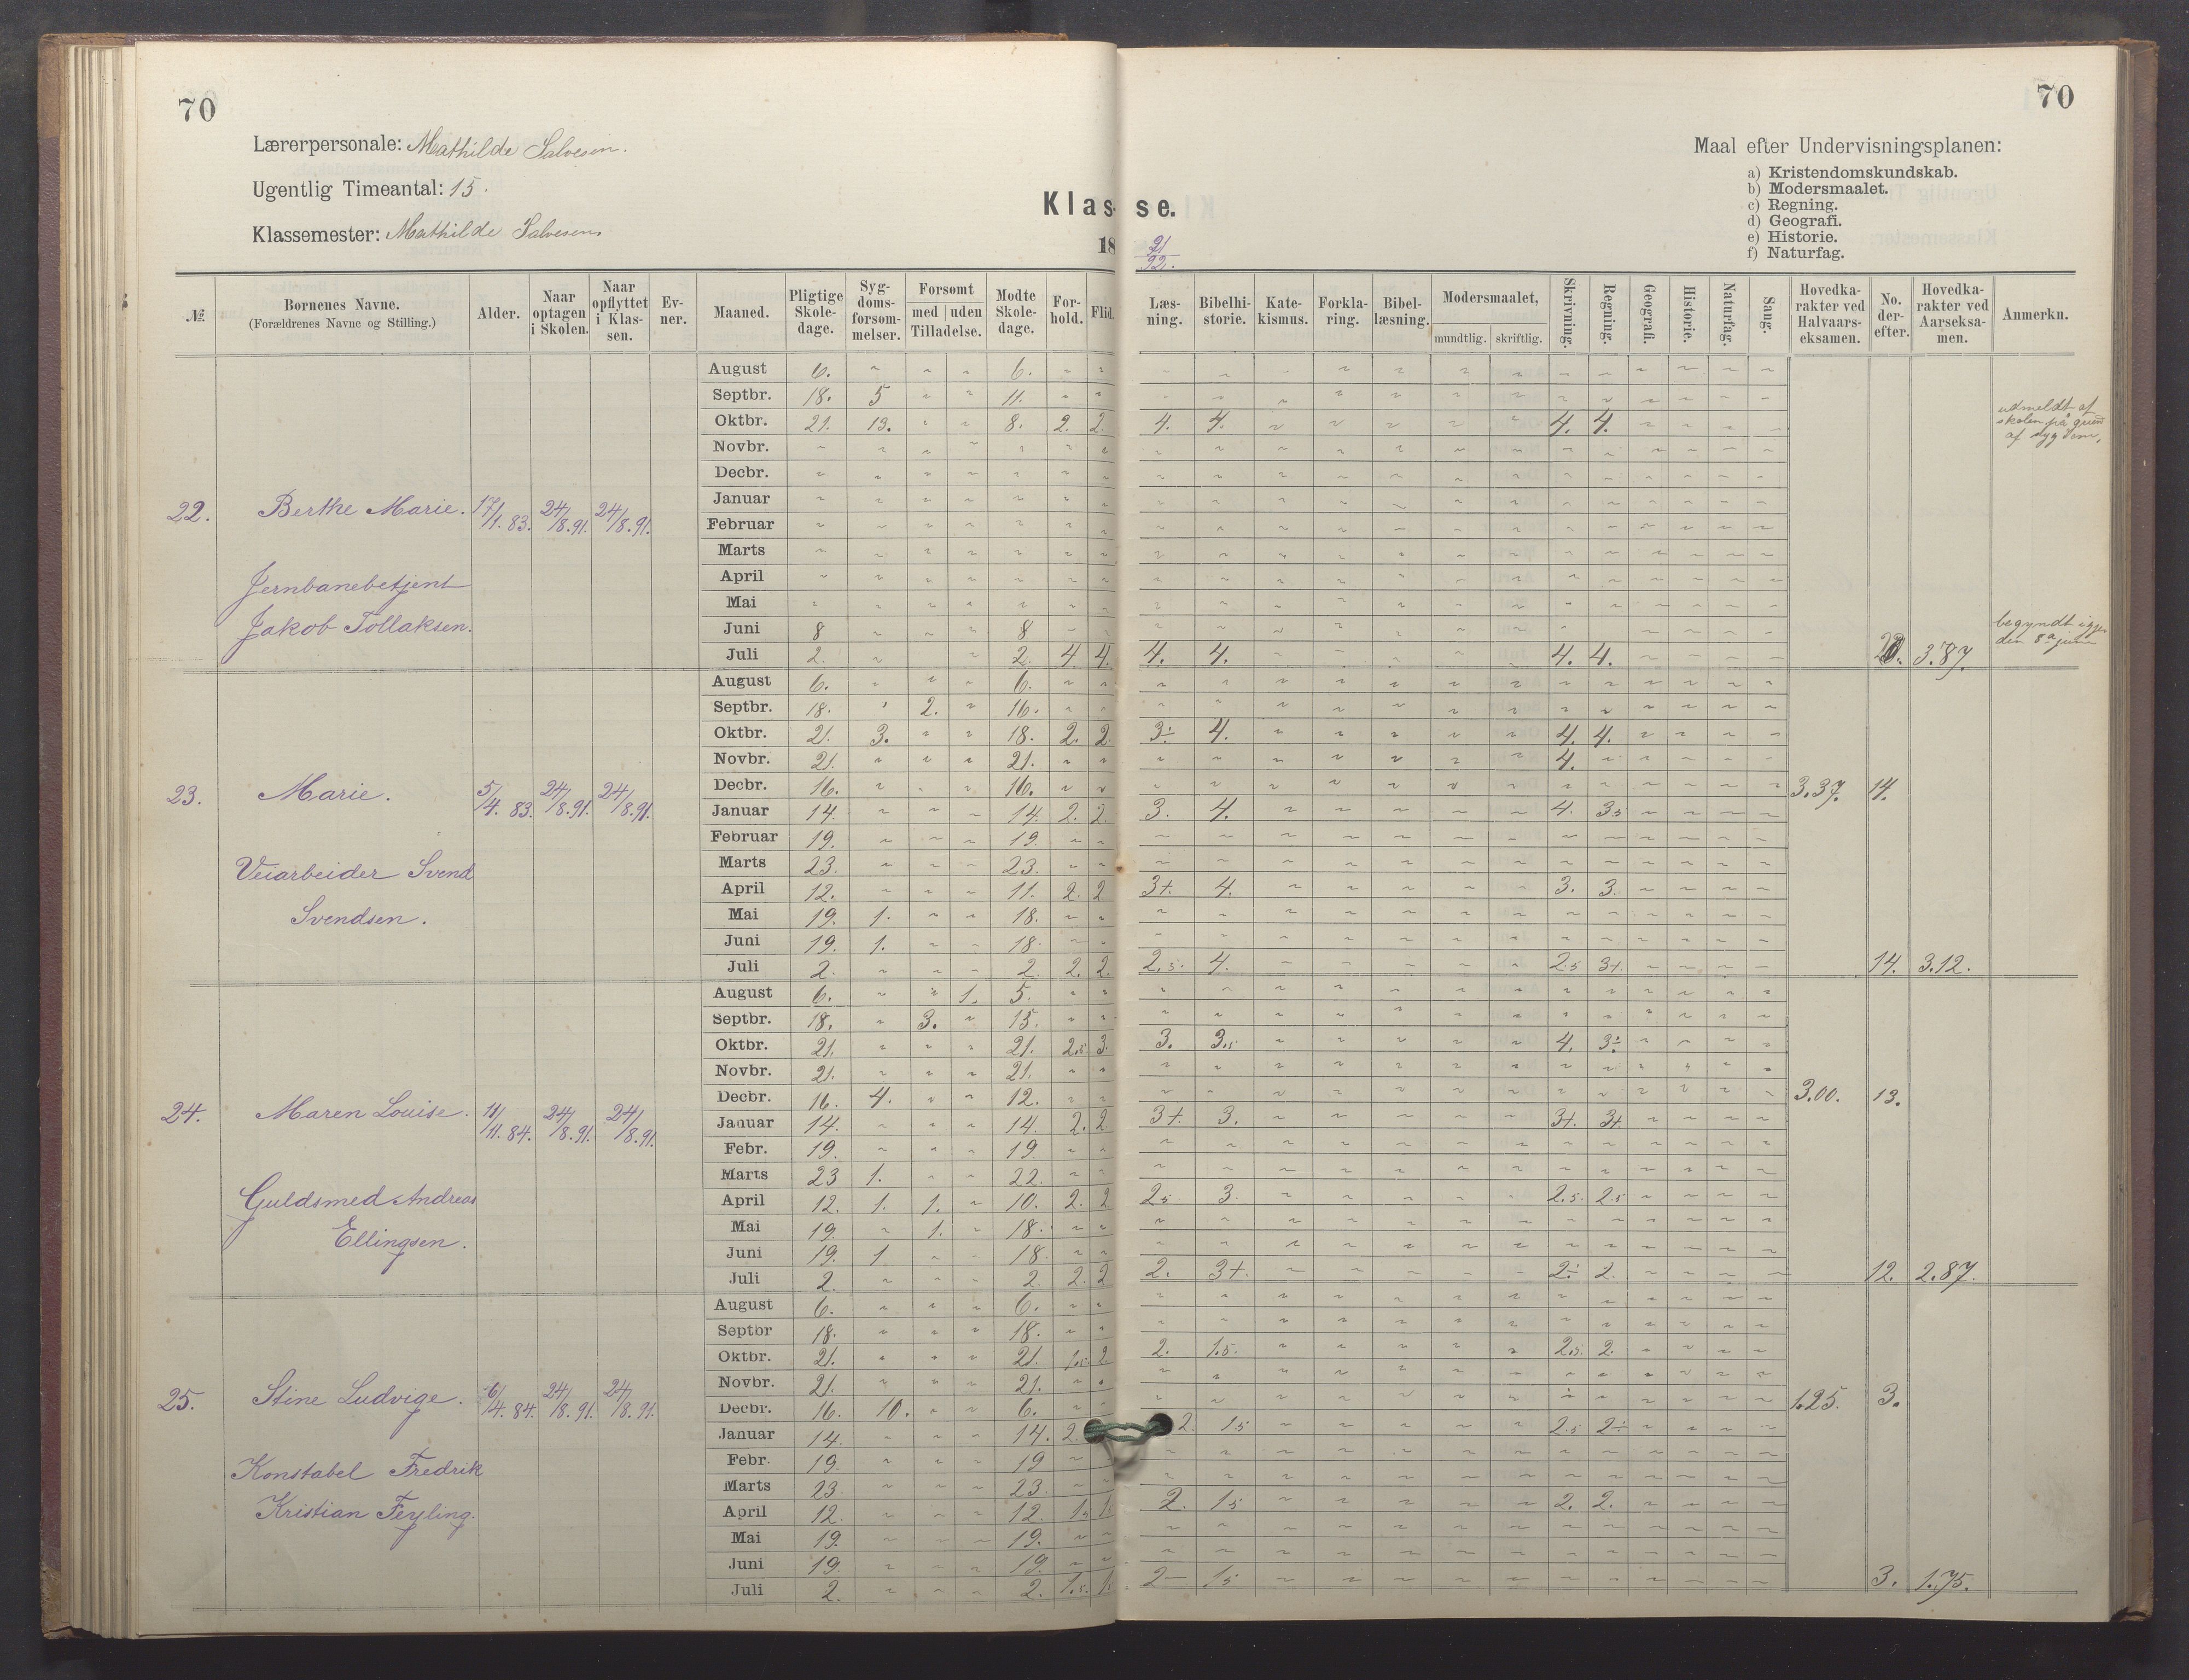 70
70
Lærerpersonale: Mathilde Salvesen.
Ugentlig Timeantal: 15.
Klassemester: Mathilde Salvesen.
Klas- se.
18 91/92.
Maal efter Undervisningsplanen:
a) Kristendomskundskab.
b) Modersmaalet.
c) Regning.
d) Geografi.
e) Historie.
f) Naturfag.
№ Børnenes Navne. (Forældrenes Navne og Stilling.) Alder. Naar optagen i Skolen. Naar opflyttet i Klassen. Evner. Maaned. Pligtige Skoledage. Sygdomsforsømmelser. Forsømt med uden Tilladelse. Mødte Skoledage. Forhold. Flid. Læsning. Bibelhistorie. Katekismus. Forklaring. Bibellæsning. Modersmaalet, mundtlig. skriftlig. Skrivning. Regning. Geografi. Historie. Naturfag. Sang. Hovedkarakter ved Halvaarseksamen. No. derefter. Hovedkarakter ved Aarseksamen. Anmerkn.
22. Berthe Marie. 17/1.83. 24/8.91. 24/8.91.
Jernbanebetjent
Jakob Tollaksen.
August 6. 6.
Septbr. 18. 5 11.
Oktbr. 21. 13. 8. 2. 2. 4. 4. 4. 4. udmeldt af skolen på grund af sygdom,
Novbr.
Decbr.
Januar
Februar
Marts
April
Mai
Juni 8 8 begyndt igjen den 8de juni
Juli 2. 2. 4 4. 4. 4. 4. 4. 3.87.
23. Marie. 5/4.83. 24/8.91. 24/8.91.
Veiarbeider Svend
Svendsen.
August 6. 6.
Septbr. 18. 2. 16.
Oktbr. 21. 3. 18. 2. 2. 3÷ 4. 4. 4.
Novbr. 21. 21. 4.
Decbr. 16. 16. 3.37. 14.
Januar 14. 14. 2. 2. 3. 4. 4. 3.5
Februar 19. 19.
Marts 23. 23.
April 12. 11. 2. 2 3+. 4. 3. 3.
Mai 19. 1. 18.
Juni 19. 1. 18.
Juli 2. 2. 2. 2. 2.5. 4. 2.5 3+. 14. 3.12.
24. Maren Louise. 11/11.84. 24/8.91. 24/8.91.
Guldsmed Andreas
Ellingsen.
August 6. 1. 5.
Septbr. 18. 3. 15.
Oktbr. 21. 21. 2.5 3. 3. 3.5 4. 3÷
Novbr. 21. 21.
Decbr. 16. 4. 12. 3.00. 13.
Januar 14. 14. 2. 2. 3+. 3. 3+. 3+
Febr. 19. 19.
Marts 23 1. 22.
April 12. 1. 1. 10. 2. 2 2.5 3. 2.5. 2.5
Mai 19. 1. 18.
Juni 19. 1 18.
Juli 2. 2. 2. 2 2. 3+. 2÷ 2. 12. 2.87.
25. Stine Ludvige. 6/4.84. 24/8.91. 24/8.91.
Konstabel Fredrik
Kristian Feyling.
August 6. 6.
Septbr 18. 18.
Oktbr. 21. 21. 1.5. 2. 2. 1.5. 2.5. 2.
Novbr. 21. 21.
Decbr. 16. 10. 6. 1.25. 3.
Januar 14. 14. 2. 2. 1.5 2.5 2÷
Febr. 19. 19
Marts 23. 23.
April 12. 12. 1.5 2. 1.5 2. 2.
Mai 19. 19.
Juni 19. 19.
Juli 2. 2. 1.5. 2– 1.5 3. 1.75.